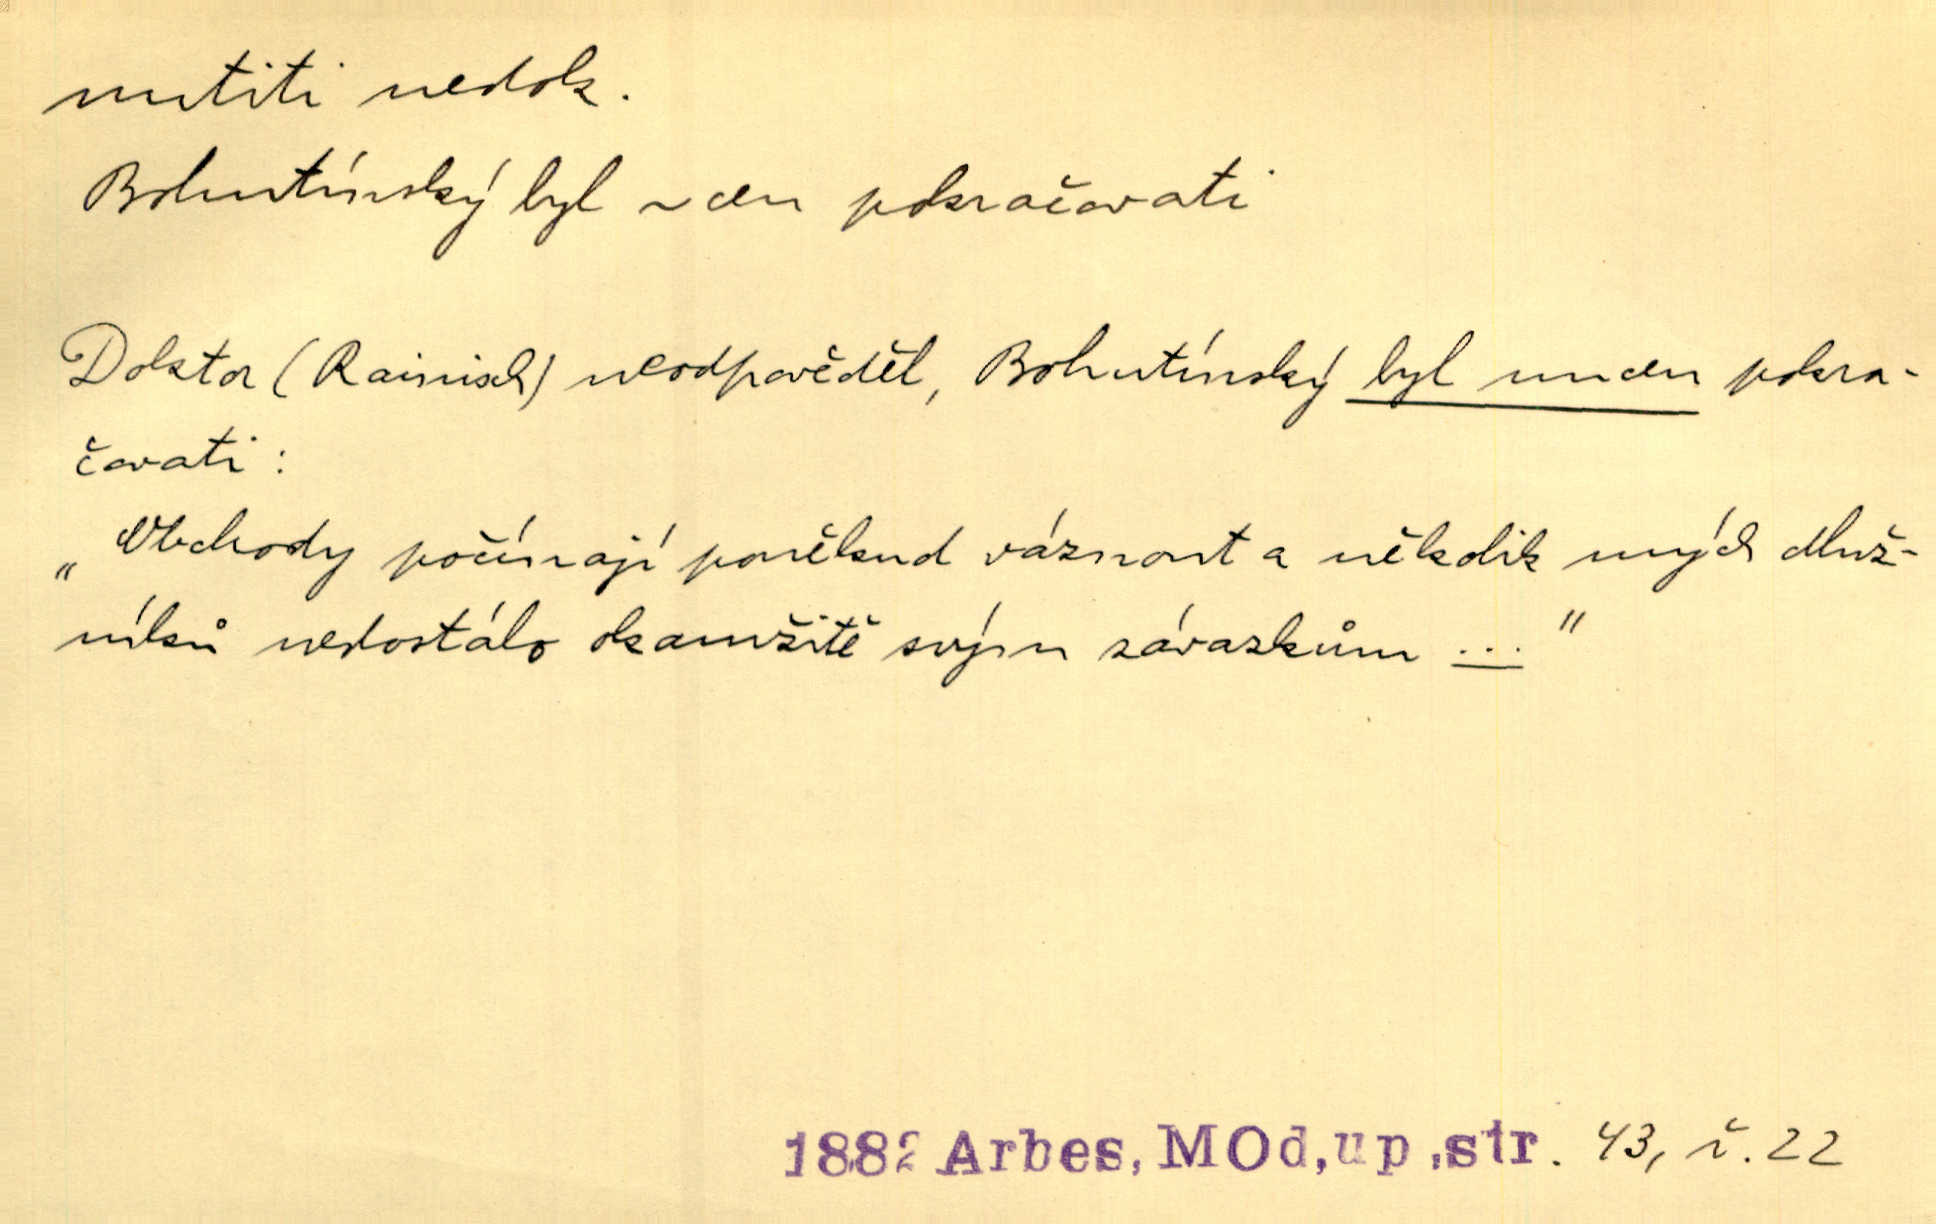 nutiti nedok.
Bohutínský byl nucen pokračovati
Doktor (Rainisch) neodpověděl, Bohutínský byl nucen pokra-
čovati:
„Obchody počínají poněkud váznout a několik mých dluž-
níků nedostálo okamžitě svým závazkům ..."
1882 Arbes, MOd, up, str. 43, ř. 22